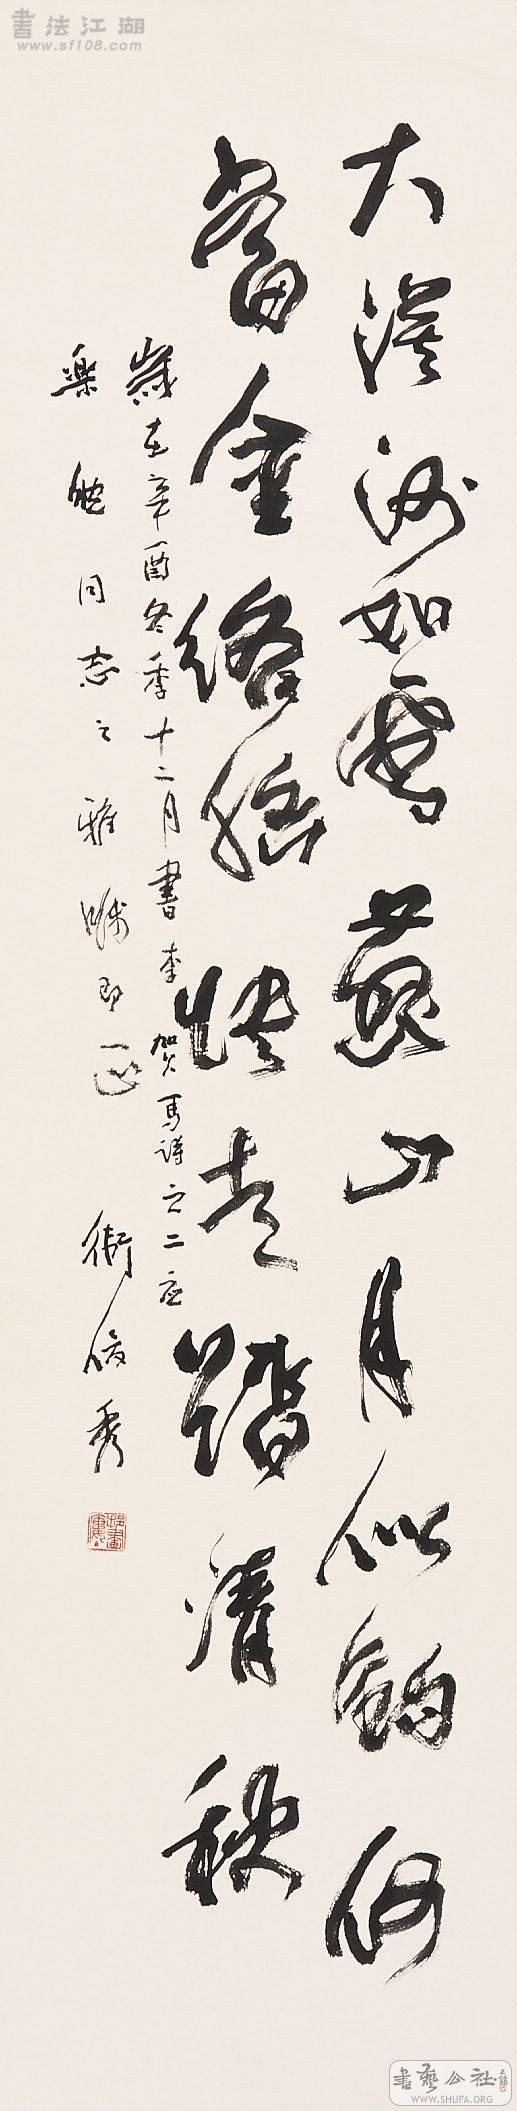 書法江湖
www.sf108.com
大漠沙如雪燕山月似鉤何
當金絡腦快走踏清秋
歲在辛酉冬季十二月書李賀馬詩之二应
樂同志之雅嘱即正 衛俊秀
書藝公社
WWW.SHUFA.ORG